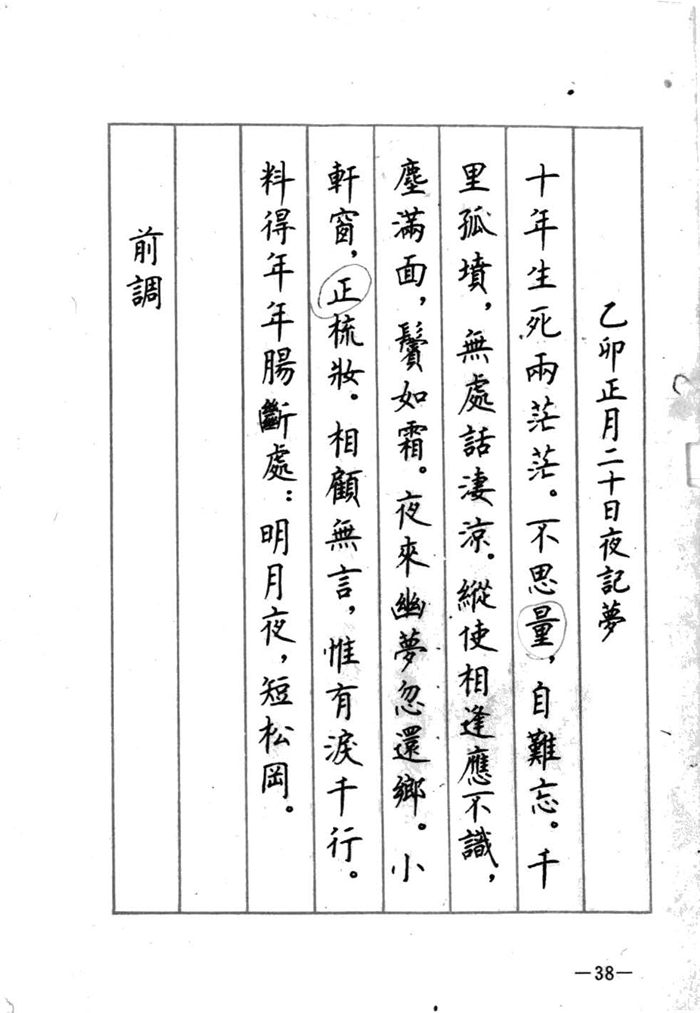 乙卯正月二十日夜記夢
十年生死兩茫茫。不思量，自難忘。千
里孤墳，無處話淒涼。縱使相逢應不識，
塵滿面，鬢如霜。夜來幽夢忽還鄉。小
軒窗，正梳妝。相顧無言，惟有淚千行。
料得年年腸斷處：明月夜，短松岡。
前調
—38—